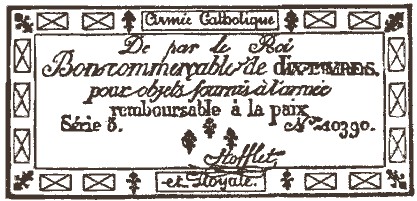 Armée Catholique
De par le Roi
Bon commerçable de dix LIVRES.
pour objets fournis à l'armée
remboursable à la paix
Série 5. No. 10390.
Stofflet
et Royale.